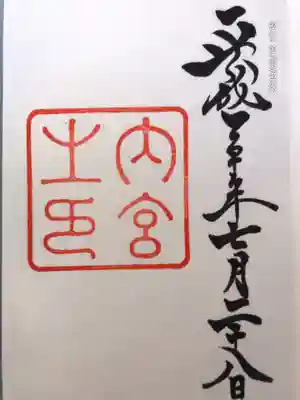 平成年七月二十八日
内宮
之印